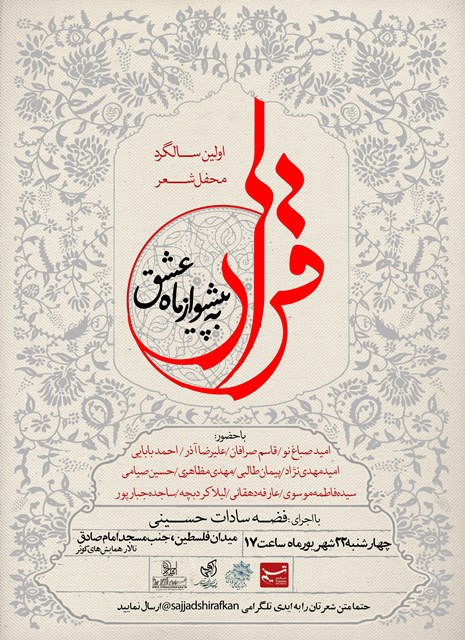 اولین سالگرد
محفل شعر
قرار
به پیشواز ماه عشق
با حضور:
امید صباغ نو/قاسم صرافان/علیرضا آذر/احمد بابایی
امید مهدی نژاد/پیمان طالبی/مهدی مظاهری/حسین صیامی
سیده فاطمه موسوی/عارفه دهقانی/لیلا کردبچه/ساجده جبارپور
با اجرای: فضه سادات حسینی
چهارشنبه ۲۲ شهریور ماه ساعت ۱۷
میدان فلسطین، جنب مسجد امام صادق
تالار همایش‌های کوثر
تسنیم
حتما متن شعرتان را به ایدی تلگرامی @sajjadshirafkan ارسال نمایید